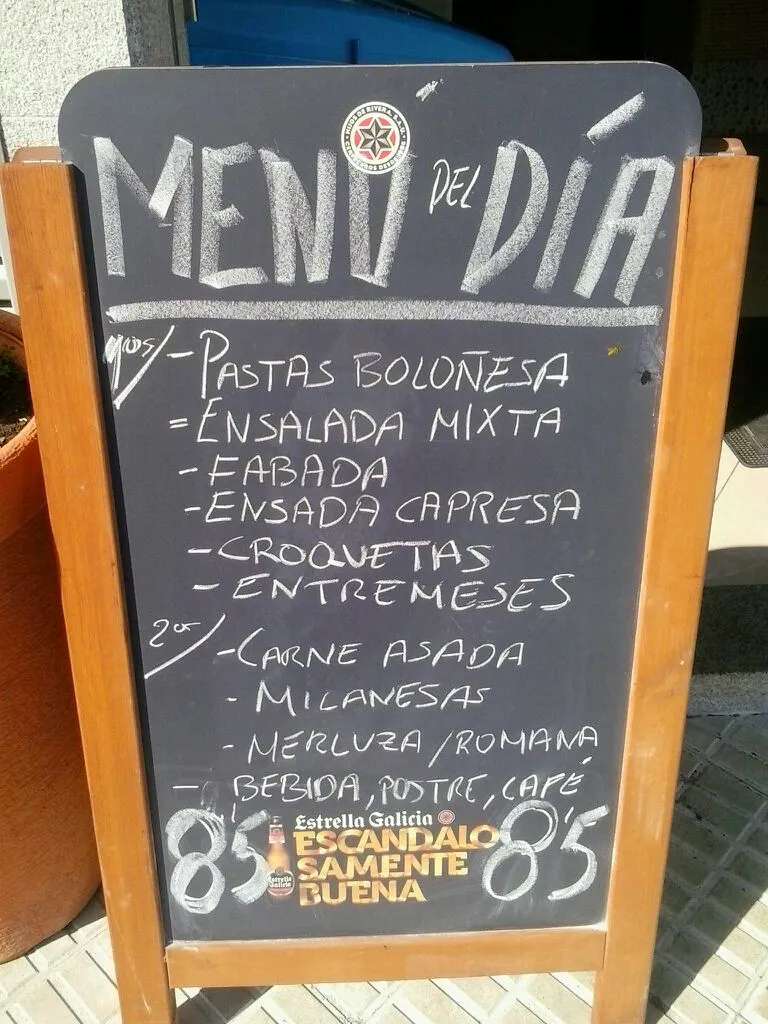 HIJOS DE RIVERA, S.A.U.
MENÚ DEL DÍA
1ºs/ - PASTAS BOLOÑESA
= ENSALADA MIXTA
- FABADA
- ENSADA CAPRESA
- CROQUETAS
- ENTREMESES
2os/ - CARNE ASADA
- MILANESAS
- MERLUZA /ROMANA
- BEBIDA, POSTRE, CAFÉ
8'5 8'5
Estrella Galicia
ESCANDALO
SAMENTE
BUENA
Estrella
Galicia